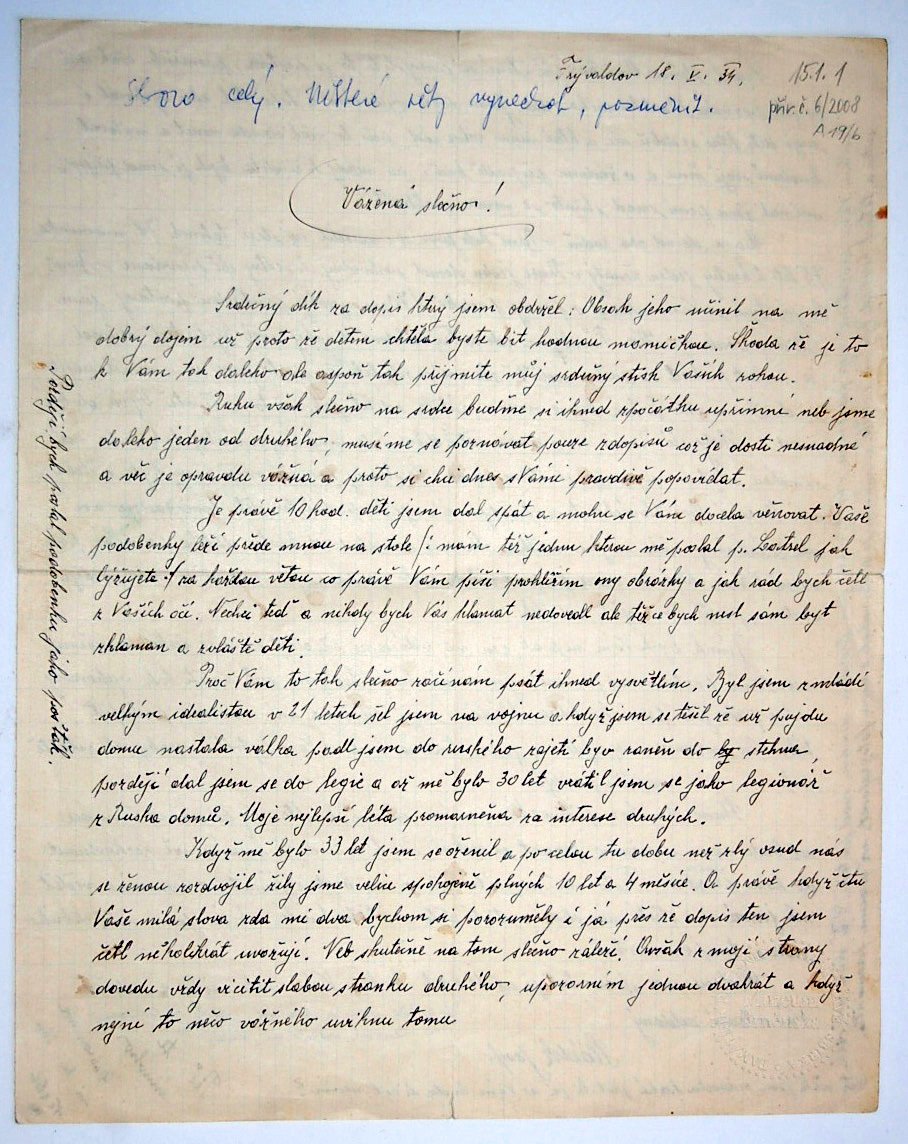 Frývaldov 18. V. 34.
15.1.1
přír. č. 6/2008
A 19/6
Slovo celý. Některé věty vynechat, pozměnit.
Vážená slečno!
Srdečný dík za dopis který jsem obdržel: Obsah jeho učinil na mě
dobrý dojem už proto že dětem chtěla byste bít hodnou mamičkou. Škoda že je to
k Vám tak daleko ale aspoň tak přijmite můj srdečný stisk Vaších rukou.
Ruku však slečno na srdce buďme si ihned zpočátku upřimní neb jsme
daleko jeden od druhého, musíme se poznávat pouze z dopisů což je dosti nesnadné
a věc je opravdu vážná a proto si chci dnes s Vámi pravdivě popovídat.
Je právě 10 hod. děti jsem dal spát a mohu se Vám docela věnovat. Vaše
podobenky leží přede mnou na stole /: mám též jednu kterou mě poslal p. jak
lyžujete :/ za každou větou co právě Vám píši prohlížím ony obrázky a jak rád bych četl
z Vaších očí. Nechci teď a nikdy bych Vás klamat nedovedl ale těžce bych nesl sám byt
zklaman a zvláště děti.
Proč Vám to tak slečno začínám psát ihned vysvětlím. Byl jsem z mládí
velkým idealistou v 21 letech šel jsem na vojnu a když jsem se těšil že už pujdu
domu nastala válka padl jsem do ruského zajetí byv raněn do stehna,
později dal jsem se do legie a až mě bylo 30 let vrátil jsem se jako legionář
z Ruska domů. Moje nejlepší léta promarněna za interese druhých.
Když mě bylo 33 let jsem se oženil a po celou tu dobu než zlý osud nás
se ženou rozdvojil žily jsme velice spokojeně plných 10 let a 4 měsíce. A právě když čtu
Vaše milá slova zda mi dva bychom si porozuměly i já přes že dopis ten jsem
četl několikrát uvažuji. Neb skutečně na tom slečno záleží. Avšak z mojí strany
dovedu vždy vicítit slabou stranku druhého, upozorním jednou dvakrát a když
nejní to něco vážného uviknu tomu
Později bych poslal podobenku jako pošťák.